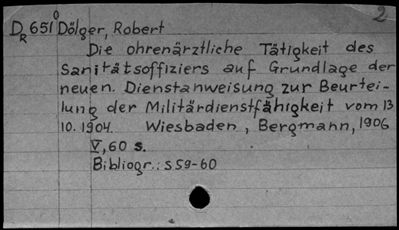 2
D_R 651⁰ Dölger, Robert
Die ohrenärztliche Tätigkeit des
Sanitätsoffiziers auf Grundlage der
neuen Dienstanweisung zur Beurtei-
lung der Militärdienstfähigkeit vom 13
10.1904. Wiesbaden, Bergmann, 1906
V, 60 s.
Bibliogr.: S 59-60